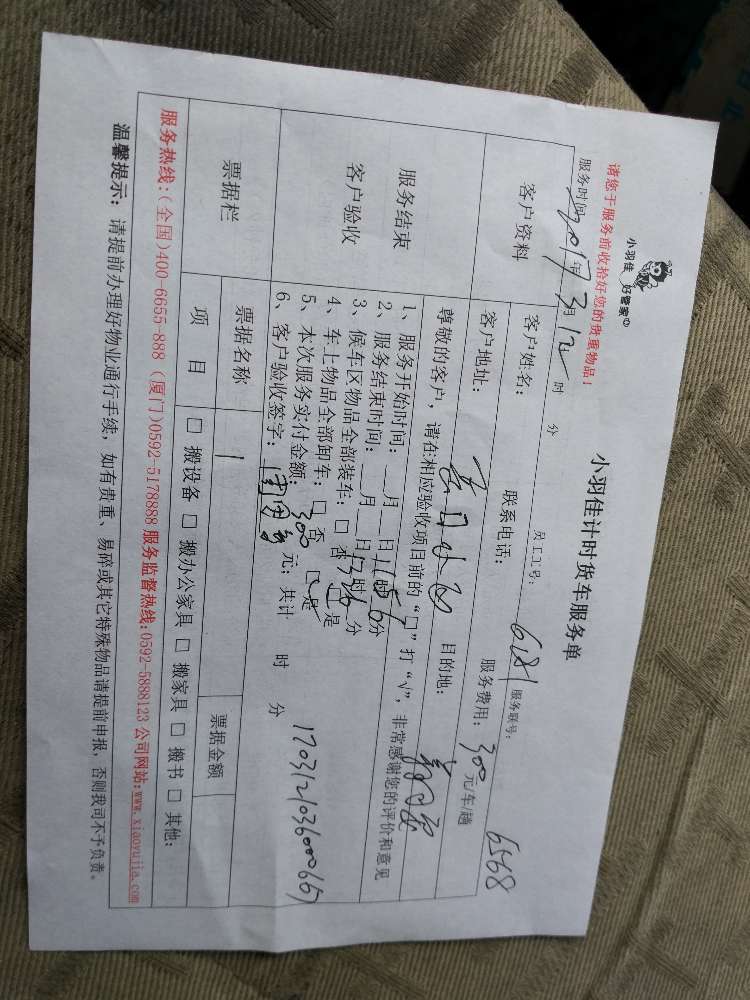 小羽佳 好管家
小羽佳计时货车服务单
请您于服务前收拾好您的贵重物品!
员工工号: 6181 服务联号: 6568
服务时间: 2017年 3月12 时 分
客户资料 客户姓名: 联系电话: 服务费用: 300元/车/趟
客户地址: 目的地:
服务结束
客户验收
尊敬的客户,请在相应验收项目前的“□”打“√”,非常感谢您的评价和意见
1、服务开始时间: 月 日 11时56分
2、服务结束时间: 月 日 13时26分
3、候车区物品全部装车: □ 否 □ 是
4、车上物品全部卸车: □ 否 □ 是
5、本次服务实付金额: 300 元; 共计 时 分
6、客户验收签字:
票据栏 票据名称 票据金额
项 目 □ 搬设备 □ 搬办公家具 □ 搬家具 □ 搬书 □ 其他:
服务热线:(全国)400-6655-888 (厦门)0592-5178888 服务监督热线:0592-5888123 公司网站:www.xiaoyujia.com
温馨提示: 请提前办理好物业通行手续,如有贵重、易碎或其它特殊物品请提前申报,否则我司不予负责。